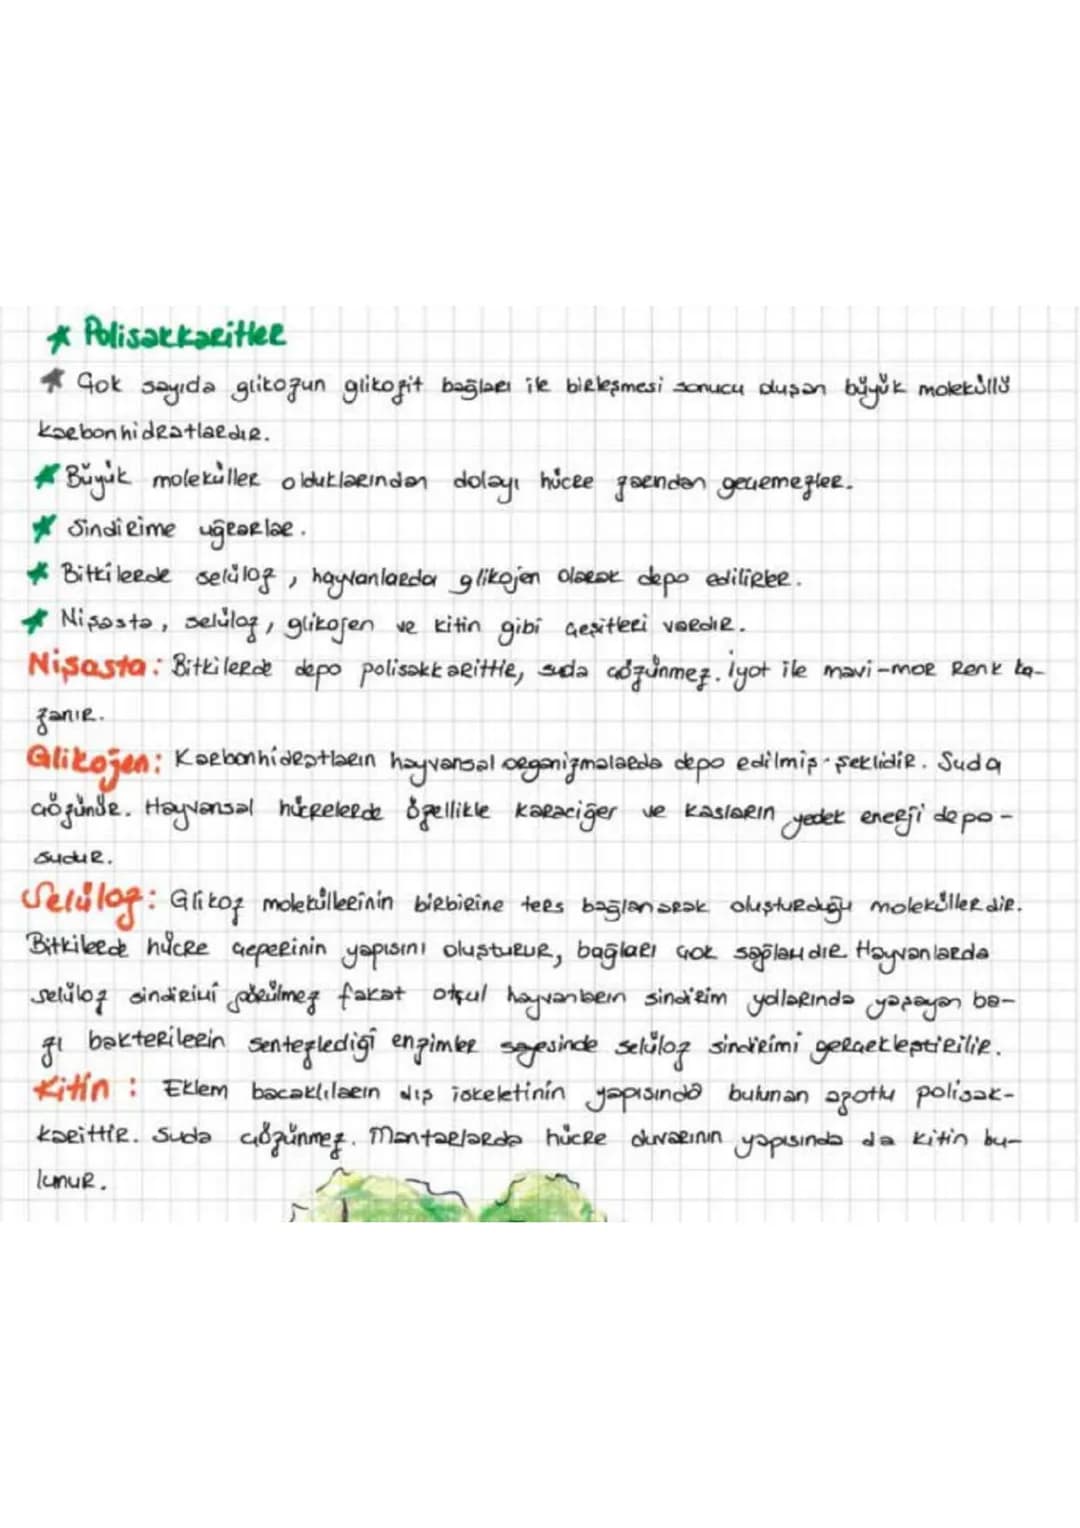 * Polisakkaritler
* Çok sayıda glikozun glikozit bağları ile birleşmesi sonucu oluşan büyük moleküllü
karbonhidratlardır.
* Büyük moleküller olduklarından dolayı hücre zarından geçemezler.
* Sindirime uğrarlar.
* Bitkilerde selüloz, hayvanlarda glikojen olarak depo edilirler.
* Nişasta, selüloz, glikojen ve kitin gibi çeşitleri vardır.
Nişasta: Bitkilerde depo polisakkarittir, suda çözünmez. İyot ile mavi-mor renk ka-
zanır.
Glikojen: Karbonhidratların hayvansal organizmalarda depo edilmiş şeklidir. Suda
çözünür. Hayvansal hücrelerde özellikle karaciğer ve kasların yedek enerji depo-
sudur.
Selüloz: Glikoz moleküllerinin birbirine ters bağlanarak oluşturduğu moleküllerdir.
Bitkilerde hücre çeperinin yapısını oluşturur, bağları çok sağlamdır. Hayvanlarda
selüloz sindirimi görülmez fakat otçul hayvanların sindirim yollarında yaşayan ba-
zı bakterilerin sentezlediği enzimler sayesinde selüloz sindirimi gerçekleştirilir.
Kitin : Eklem bacaklıların dış iskeletinin yapısında bulunan azotlu polisak-
karittir. Suda çözünmez. Mantarlarda hücre duvarının yapısında da kitin bu-
lunur.